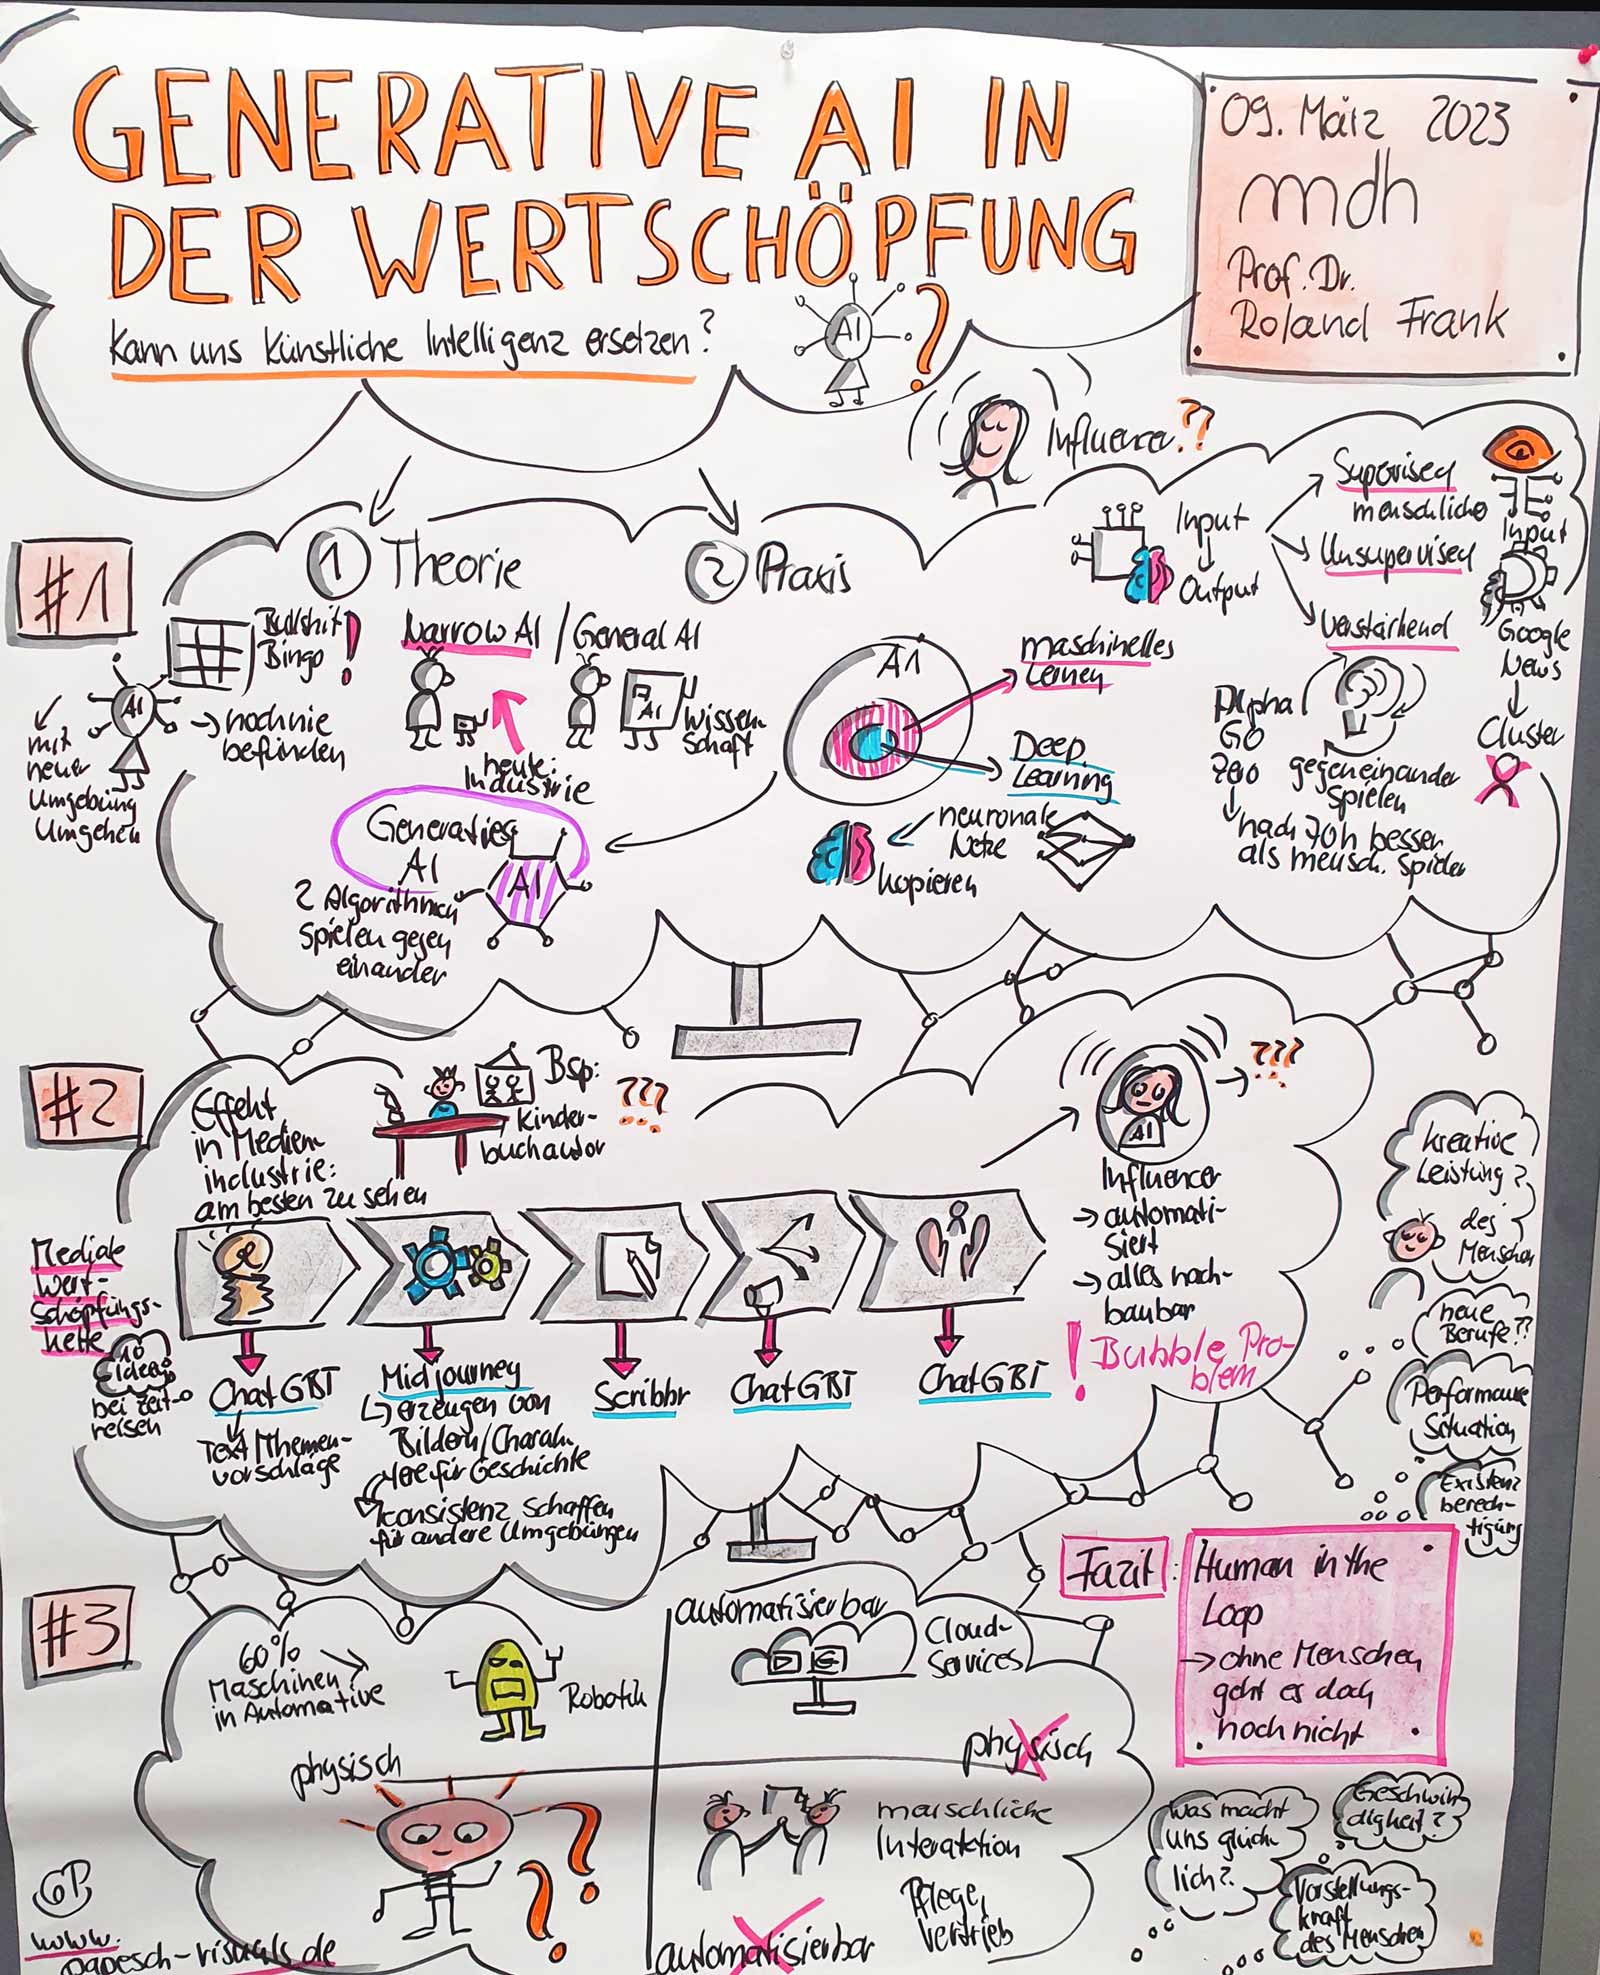 GENERATIVE AI IN
DER WERTSCHÖPFUNG
Kann uns Künstliche Intelligenz ersetzen?
AI
?
09. März 2023
mdh
Prof. Dr.
Roland Frank
Influencer??
#1
1 Theorie
2 Praxis
Bullshit
Bingo !
AI
→ noch nie
befunden
mit
neuer
Umgebung
Umgehen
Narrow AI / General AI
AI
Wissen
schaft
heute:
Industrie
Generaties
AI
AI
2 Algorithmen
Spielen gegen
einander
AI
maschinelles
Lernen
Deep
Learning
neuronale
Netze
kopieren
Input
Output
Supervised
menschlicher
Input
Unsupervised
Google
News
Cluster
Verstärkend
Alpha
GO
Zero
gegeneinander
spielen
nach 70h besser
als mensch. Spieler
#2
Effekt
in Medien
industrie:
am besten zu sehen
Bsp:
Kinder-
buchautor
???
Mediale
Wert-
Schöpfungs-
kette
10
Ideen
bei Zeit-
reisen
ChatGBT
Text/Themen-
vorschläge
Midjourney
erzeugen von
Bildern/Charak-
tere für Geschichte
Konsistenz schaffen
für andere Umgebungen
Scribbr
ChatGBT
ChatGBT
AI
→ ???
Influencer
→ automati-
siert
→ alles nach-
baubar
! Bubble Pro-
blem
kreative
Leistung?
des
Menschen
neue
Berufe??
Performance
Situation
Existenz
berech-
tigung
#3
60%
Maschinen?
in Automotive
Robotik
physisch
??
automatisierbar
Cloud-
Services
physisch
menschliche
Interaktion
Pflege,
Vertrieb
automatisierbar
Fazit:
Human in the
Loop
→ ohne Menschen
geht es doch
noch nicht
Was macht
uns glück-
lich?
Geschwin
digkeit?
Vorstellungs-
kraft
des Menschen
GP
www.
papesch-visuals.de